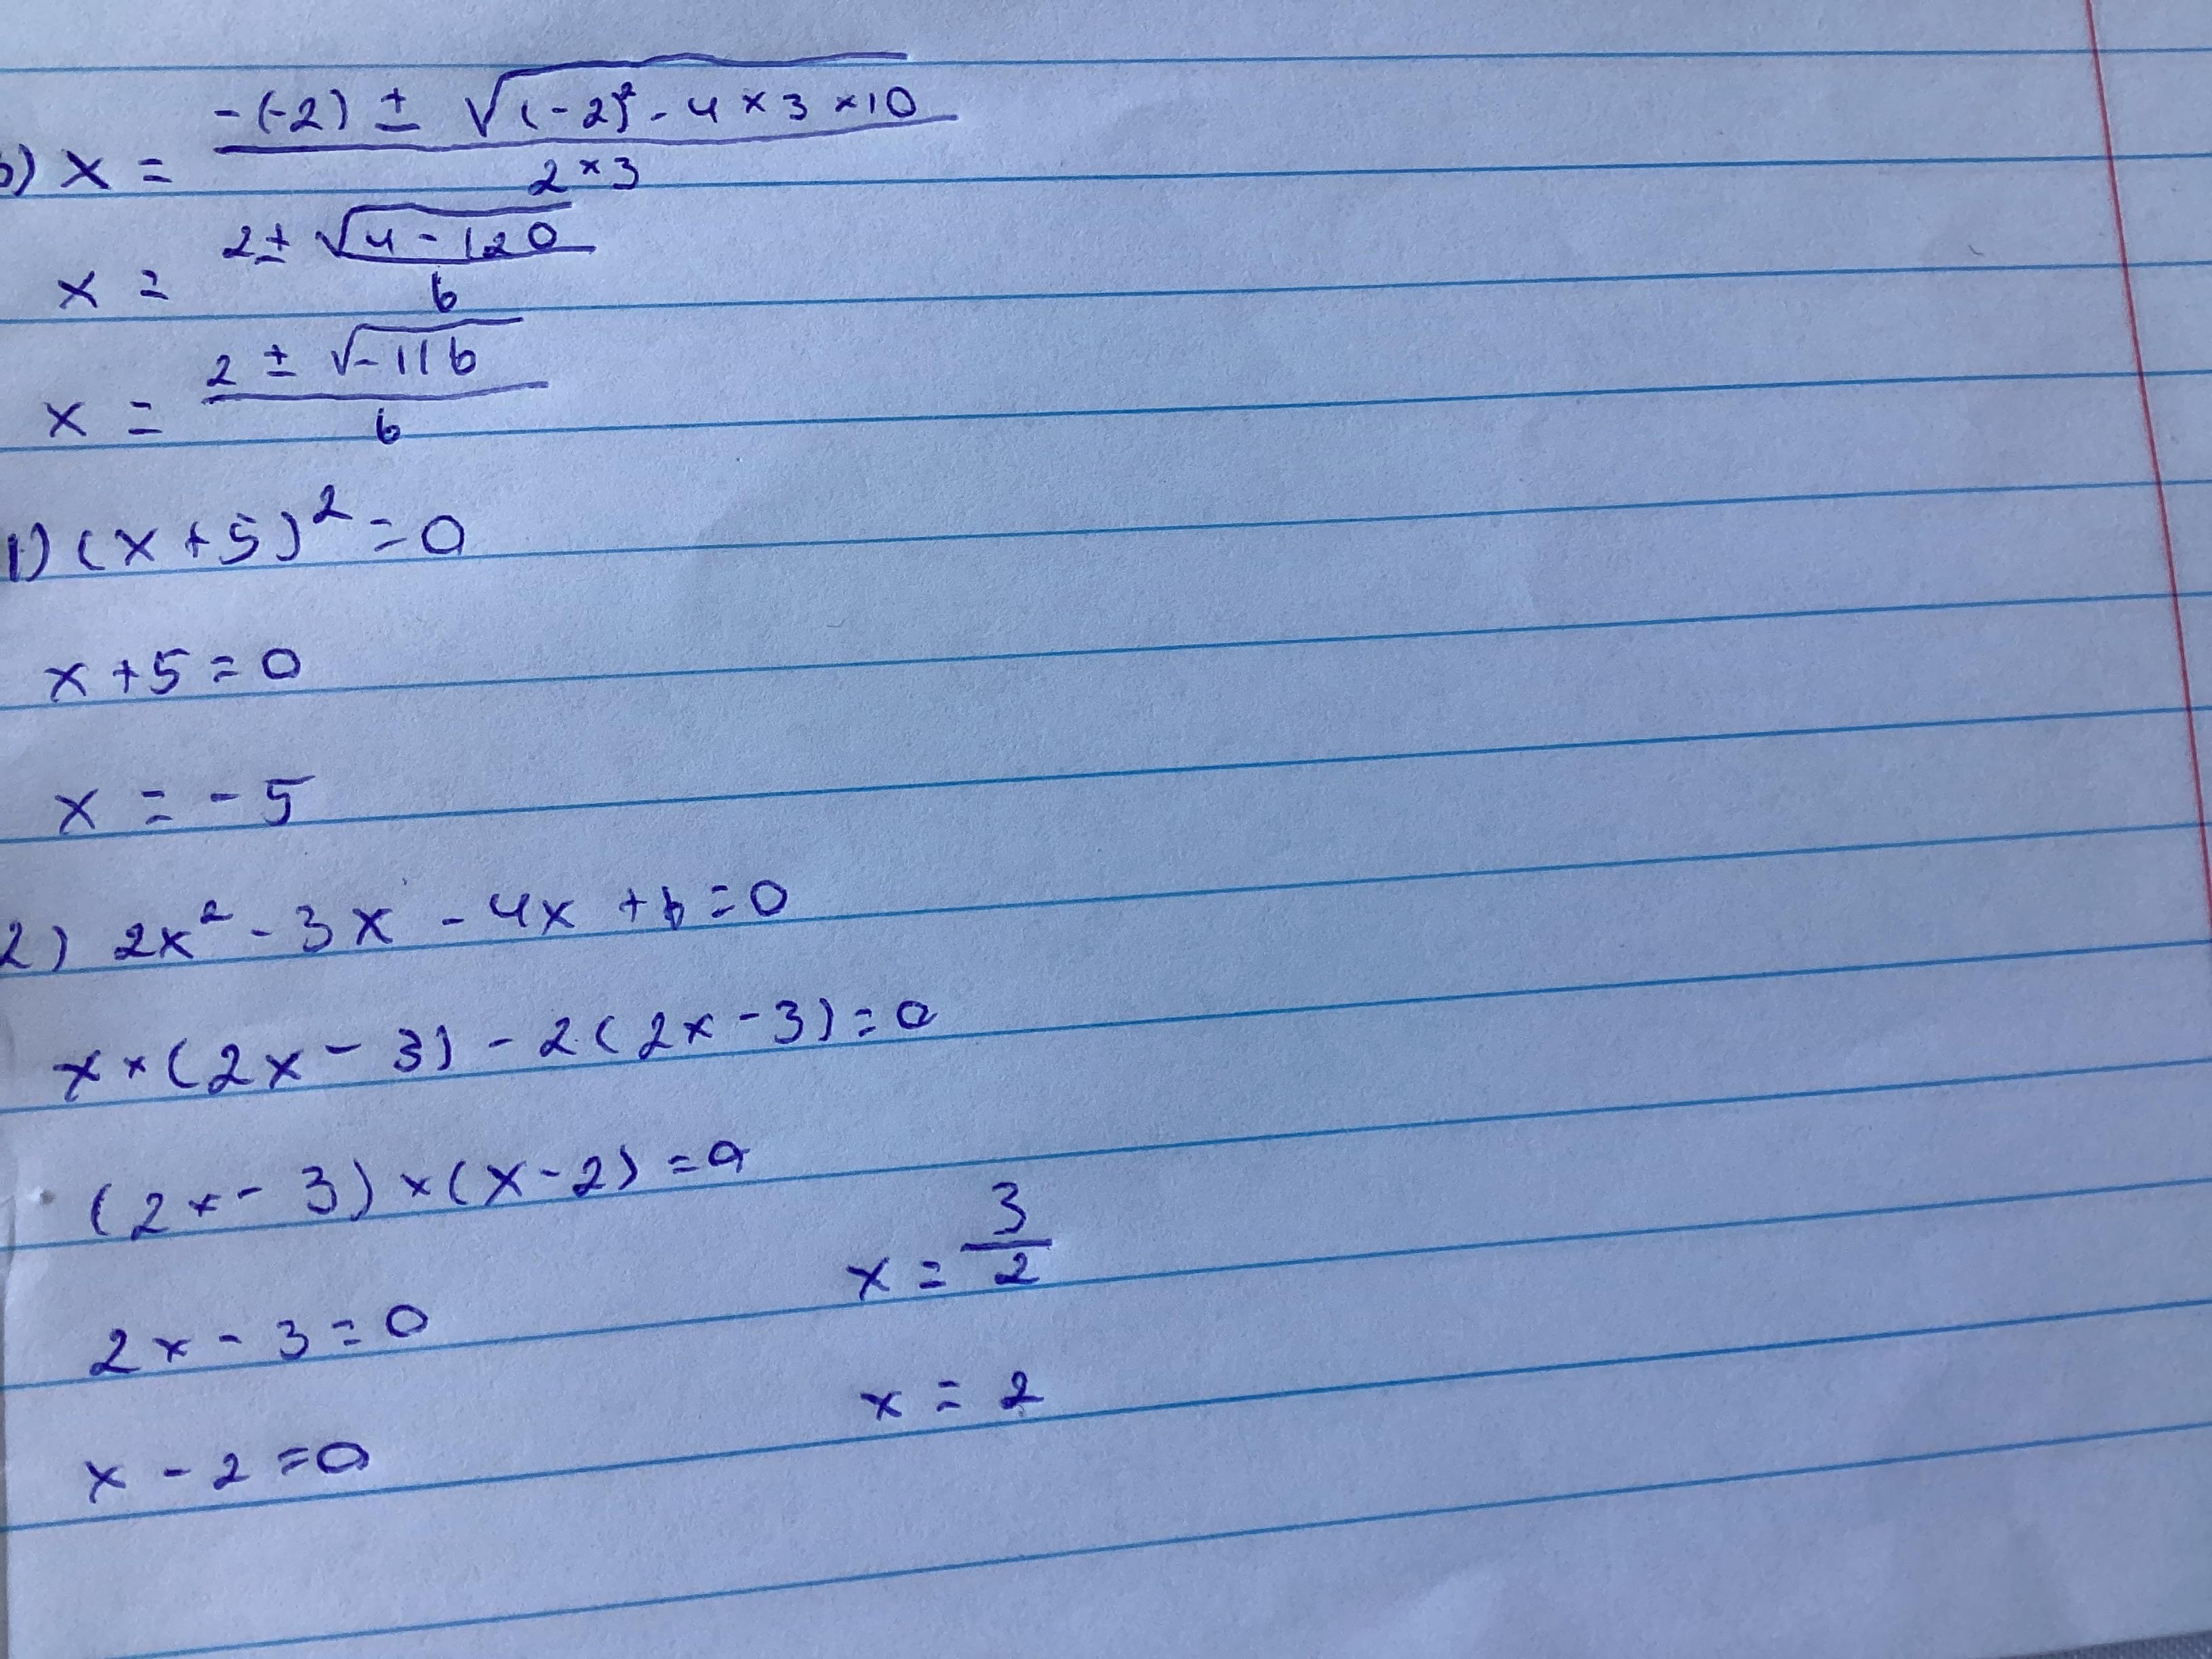 ) x = (-(-2) ± √((-2)² - 4 × 3 × 10)) / (2 × 3)
x = (2 ± √(4 - 120)) / 6
x = (2 ± √-116) / 6
1) (x + 5)² = 0
x + 5 = 0
x = - 5
2) 2x² - 3x - 4x + 6 = 0
x × (2x - 3) - 2(2x - 3) = 0
(2x - 3) × (x - 2) = 0
2x - 3 = 0 x = 3/2
x - 2 = 0 x = 2